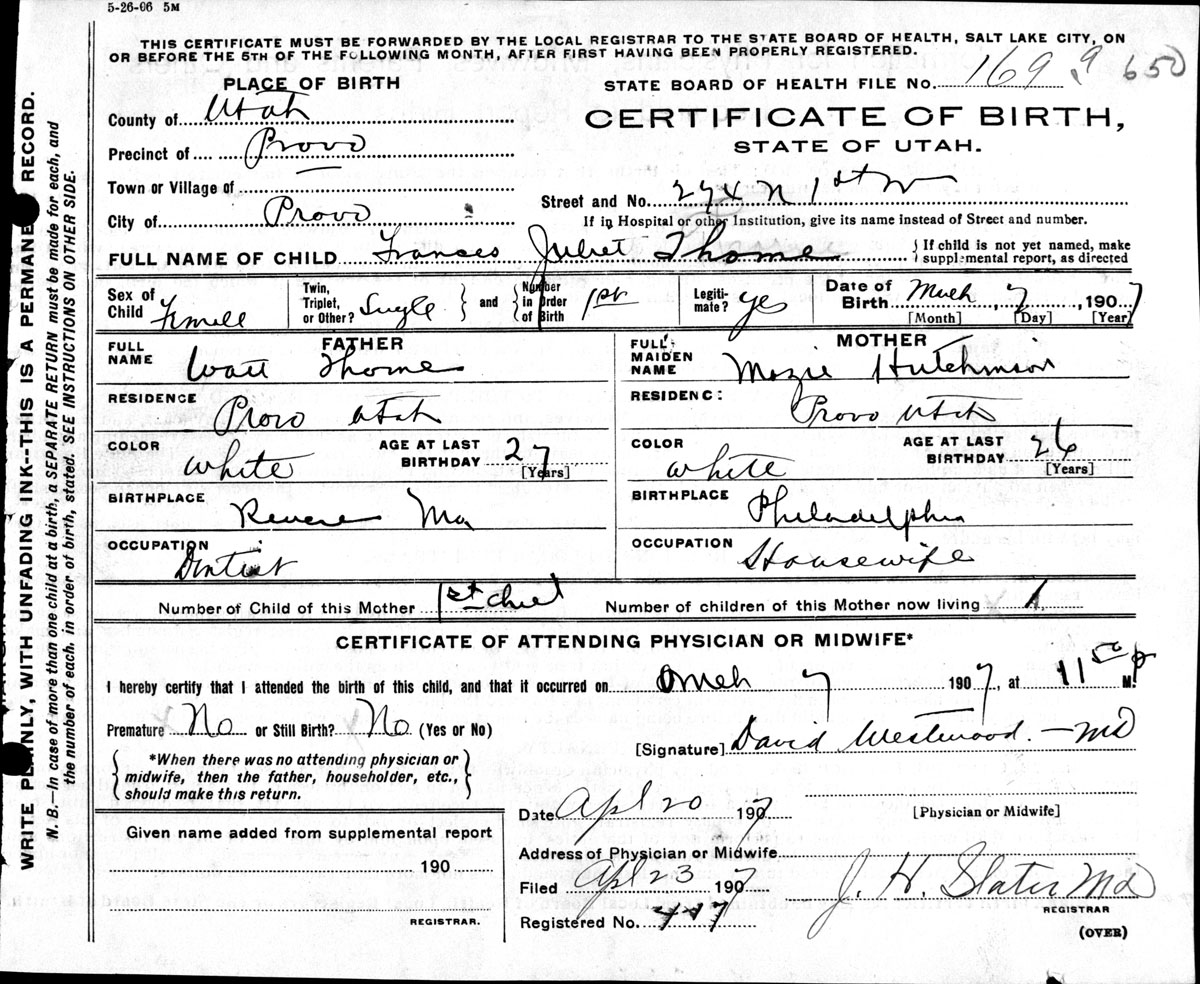 5-26-06 5M
THIS CERTIFICATE MUST BE FORWARDED BY THE LOCAL REGISTRAR TO THE STATE BOARD OF HEALTH, SALT LAKE CITY, ON
OR BEFORE THE 5TH OF THE FOLLOWING MONTH, AFTER FIRST HAVING BEEN PROPERLY REGISTERED.
PLACE OF BIRTH
STATE BOARD OF HEALTH FILE NO. 169 9 650
County of Utah
CERTIFICATE OF BIRTH,
STATE OF UTAH.
Precinct of Provo
Town or Village of
Street and No. 274 N 1st W
City of Provo
If in Hospital or other Institution, give its name instead of Street and number.
FULL NAME OF CHILD Frances Juliet Thorne
{If child is not yet named, make
supplemental report, as directed
Sex of Child Female
Twin, Triplet, or Other? Single } and { Number in Order of Birth 1st
Legiti-mate? yes
Date of Birth March 7, 1907
[Month] [Day] [Year]
FATHER
FULL NAME Watt Thorne
RESIDENCE Provo Utah
COLOR White
AGE AT LAST BIRTHDAY 27
[Years]
BIRTHPLACE Revere Ma
OCCUPATION Dentist
MOTHER
FULL MAIDEN NAME Mazie Hutchinson
RESIDENC: Provo Utah
COLOR White
AGE AT LAST BIRTHDAY 26
[Years]
BIRTHPLACE Philadelphia
OCCUPATION Housewife
Number of Child of this Mother 1st child
Number of children of this Mother now living 1
CERTIFICATE OF ATTENDING PHYSICIAN OR MIDWIFE*
I hereby certify that I attended the birth of this child, and that it occurred on Mch 7 1907, at 11 50 p M.
Premature No or Still Birth? No (Yes or No)
[Signature] David Westwood - MD
{*When there was no attending physician or
midwife, then the father, householder, etc.,
should make this return.}
Date Apl 20 1907
[Physician or Midwife]
Given name added from supplemental report
190
REGISTRAR.
Address of Physician or Midwife
Filed Apl 23 1907
J. H. Slater Md
REGISTRAR
Registered No.
(OVER)
WRITE PLAINLY, WITH UNFADING INK--THIS IS A PERMANENT RECORD.
N. B.—In case of more than one child at a birth, a SEPARATE RETURN must be made for each, and
the number of each, in order of birth, stated. SEE INSTRUCTIONS ON OTHER SIDE.